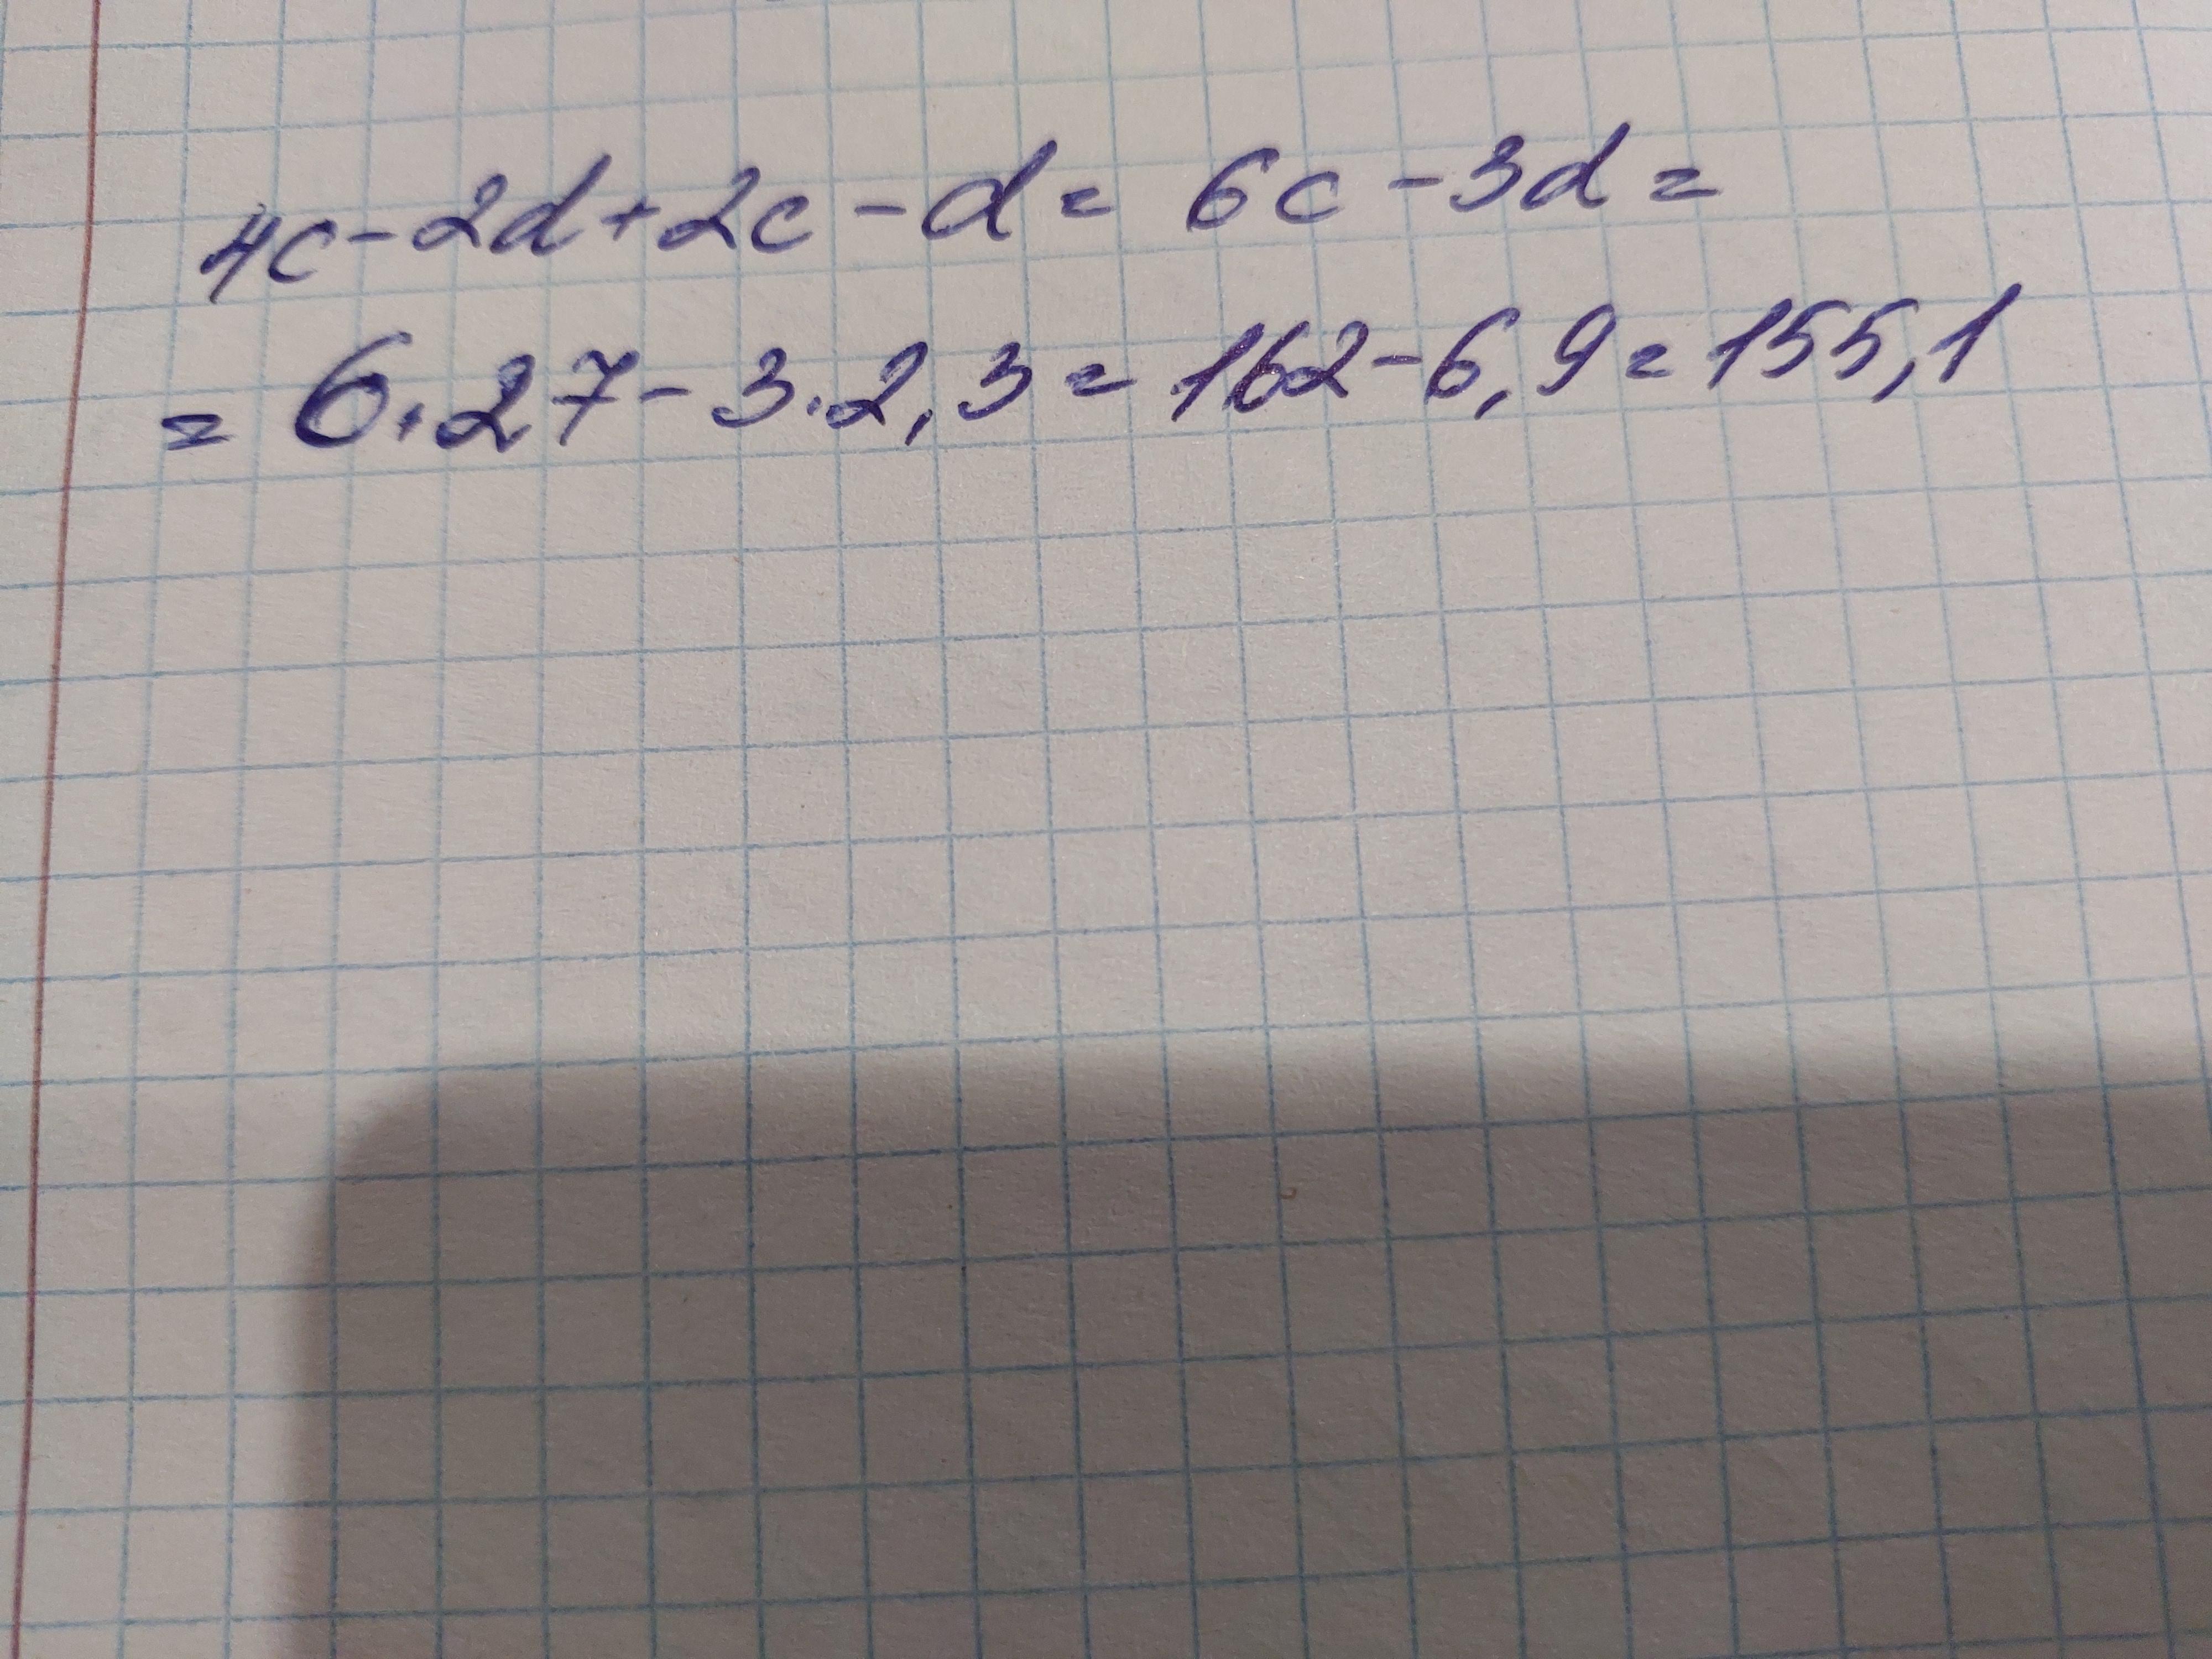 4c-2d+2c-d= 6c-3d=
= 6·27-3·2,3=162-6,9=155,1